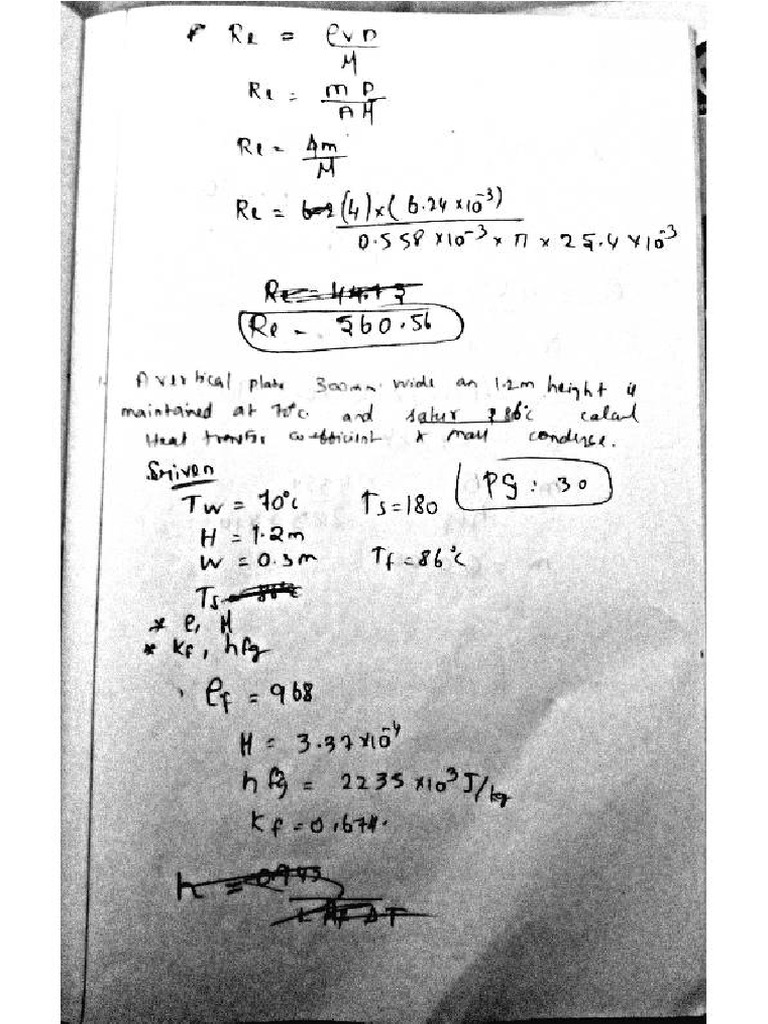 Re = ρvD / μ
Re = mD / Aμ
Re = 4m / μ
Re = (4)×(6.24×10⁻³) / 0.558×10⁻³ × π × 25.4×10⁻³
Re = 560.56
A vertical plate 300mm wide an 1.2m height is
maintained at 70°c and 86°c
Heat transfer coefficient & mass condense.
Given
PG : 30
Tw = 70°c Ts = 180
H = 1.2m
W = 0.3m Tf = 86°c
Ts
* ρ, μ
* Kf, hfg
ρf = 968
μ = 3.37×10⁻⁴
hfg = 2235×10³ J/kg
Kf = 0.674.
h = 0.943